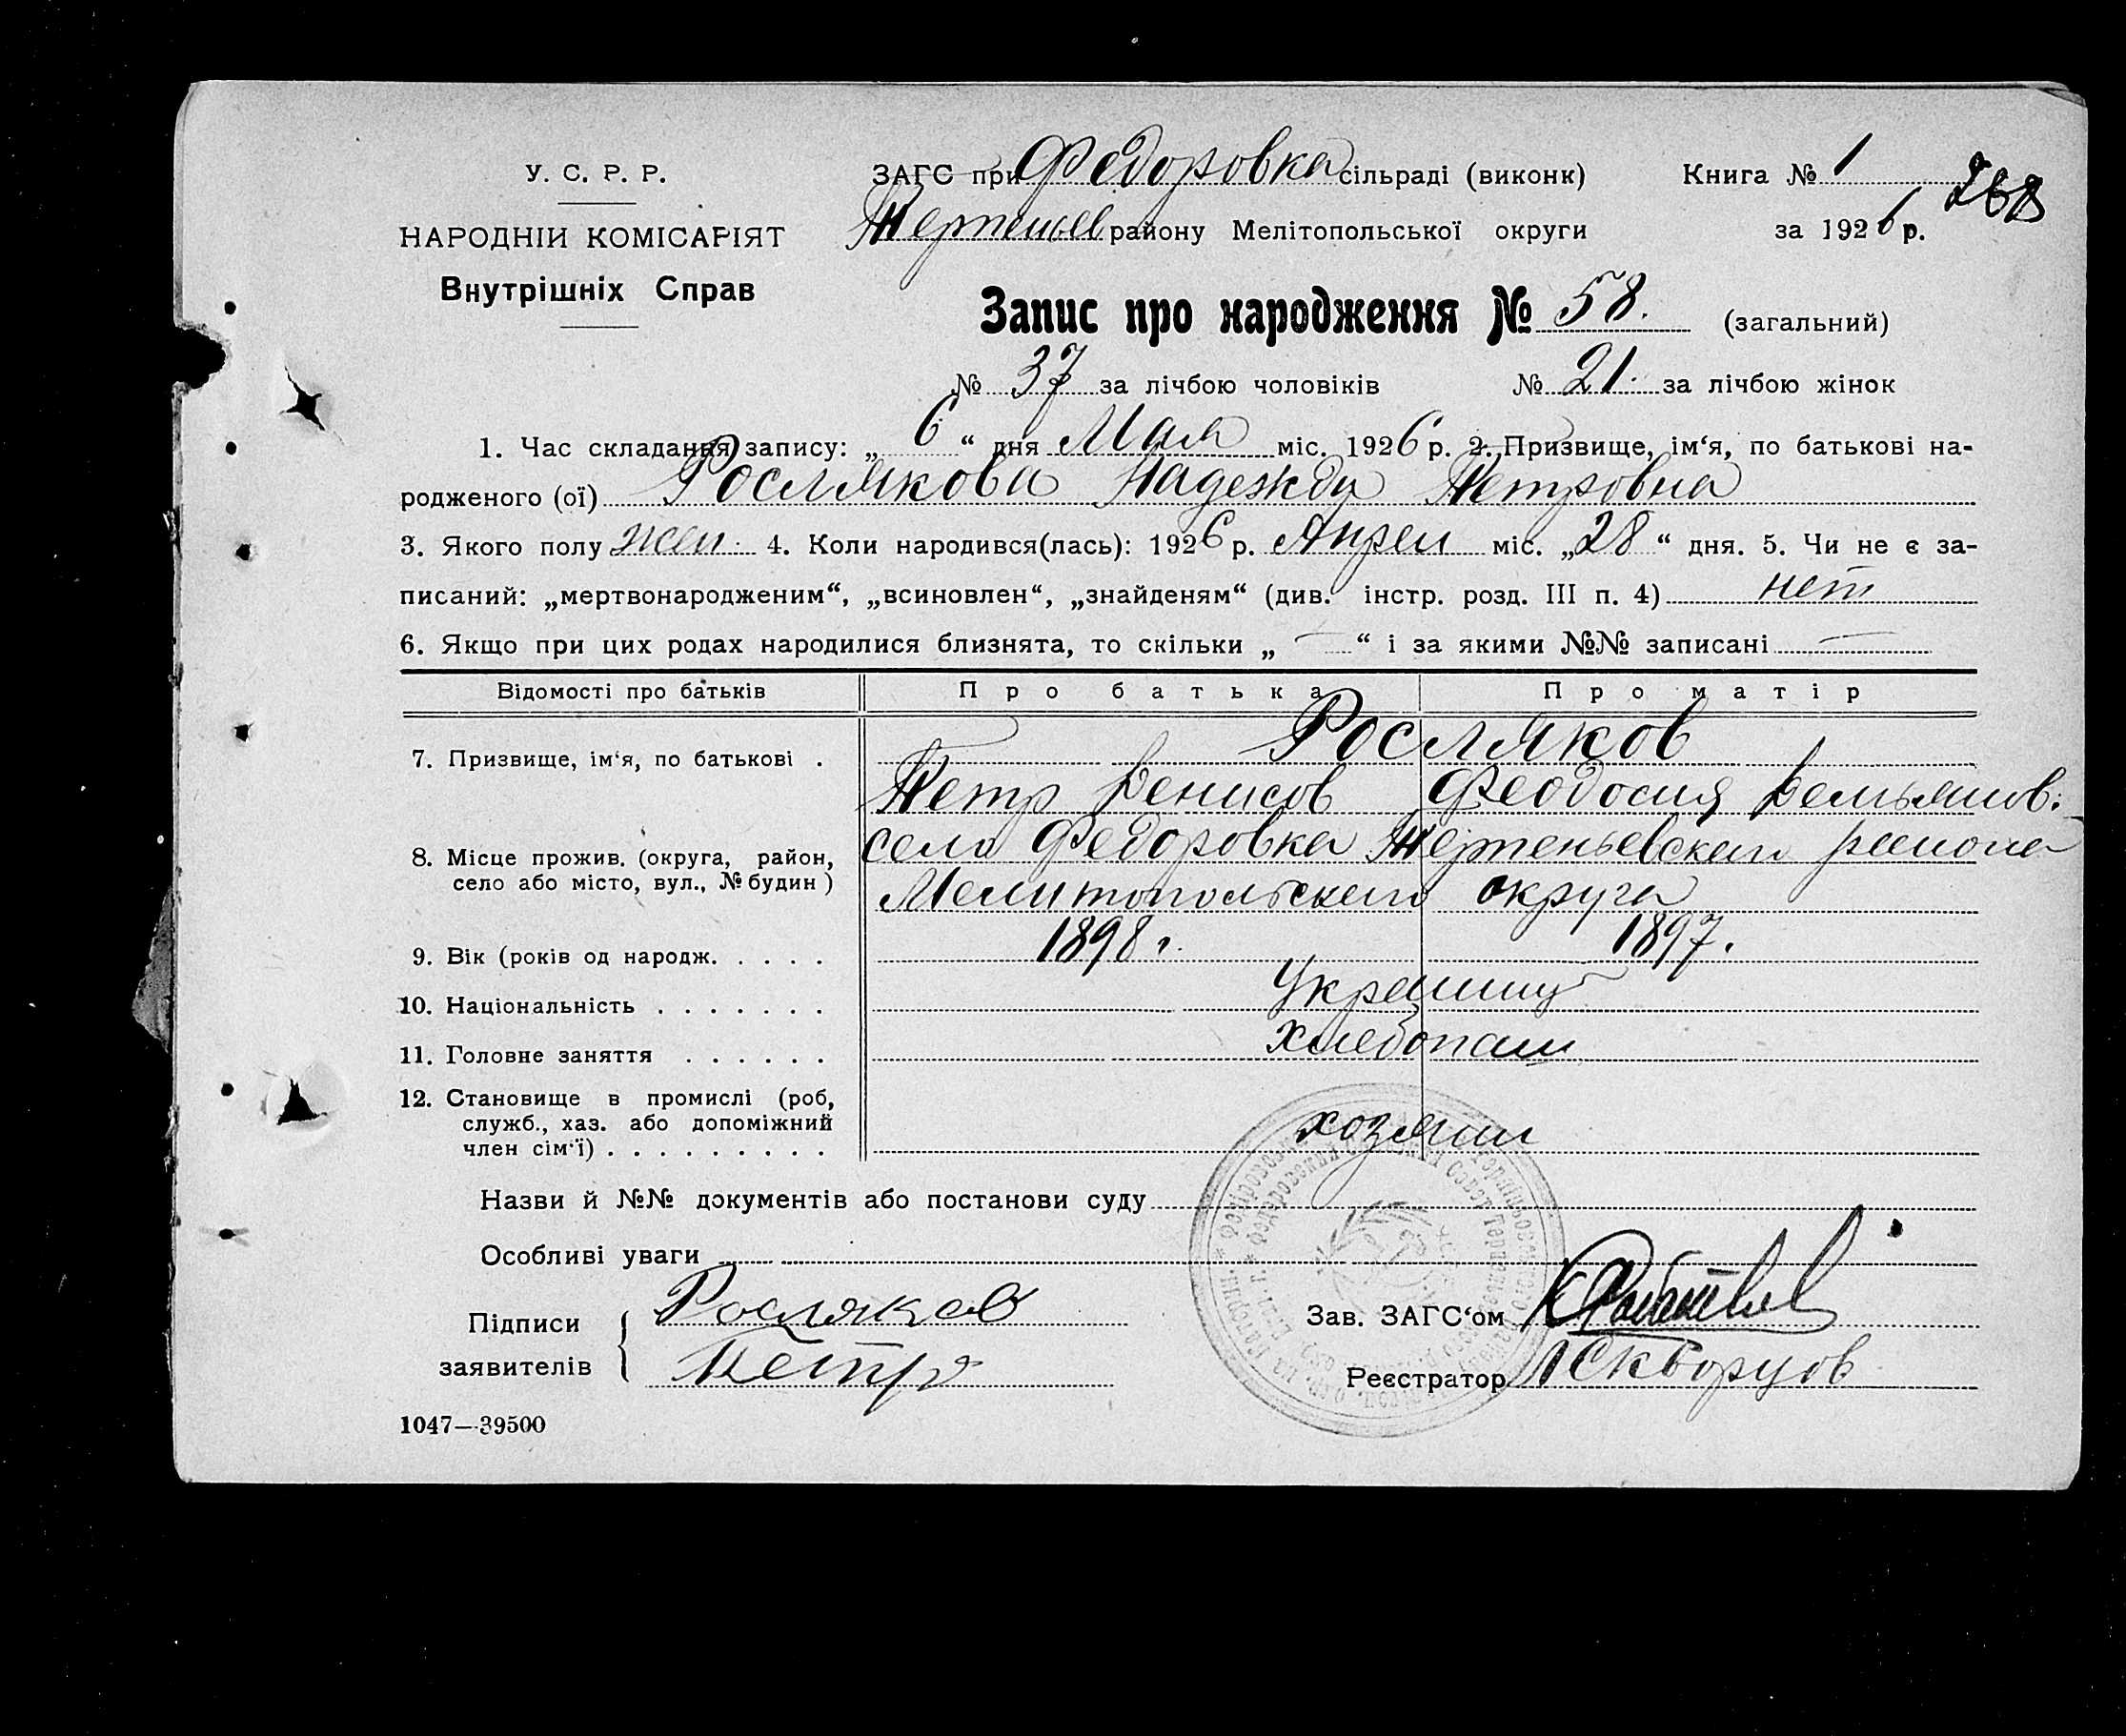 У. С. Р. Р.
НАРОДНІЙ КОМІСАРІЯТ
Внутрішніх Справ
ЗАГС при Федоровка сільраді (виконк) Книга № 1
району Мелітопольської округи за 1926 р. 268
Запис про народження № 58. (загальний)
№ 37 за лічбою чоловіків № 21. за лічбою жінок
1. Час складання запису: „ 6 “ дня Мая міс. 1926 р. 2. Призвище, ім‘я, по батькові на-
родженого (ої) Рослякова Надежда Петровна
3. Якого полу жен. 4. Коли народився(лась): 1926 р. Апрел міс. „28“ дня. 5. Чи не є за-
писаний: „мертвонародженим“, „всиновлен“, „знайденям“ (див. інстр. розд. III п. 4) нет
6. Якщо при цих родах народилися близнята, то скільки „ — “ і за якими №№ записані —
Відомості про батьків Про батька Про матір
Росляков
7. Призвище, ім‘я, по батькові .
Петр Денисов Феодосия Демьянов.
8. Місце прожив. (округа, район, село Федоровка района
село або місто, вул., № будин ) Мелитопольского округа
9. Вік (років од народж. . . . . 1898 г. 1897.
10. Національність . . . . . . . Украинц
11. Головне заняття . . . . . . хлебопаш
12. Становище в промислі (роб,
служб., хаз. або допоміжний хозяин
член сім‘ї) . . . . . . . . .
Назви й №№ документів або постанови суду
Особливі уваги
Підписи Росляков Зав. ЗАГС‘ом
заявителів Петр Реєстратор Скворцов
1047—39500